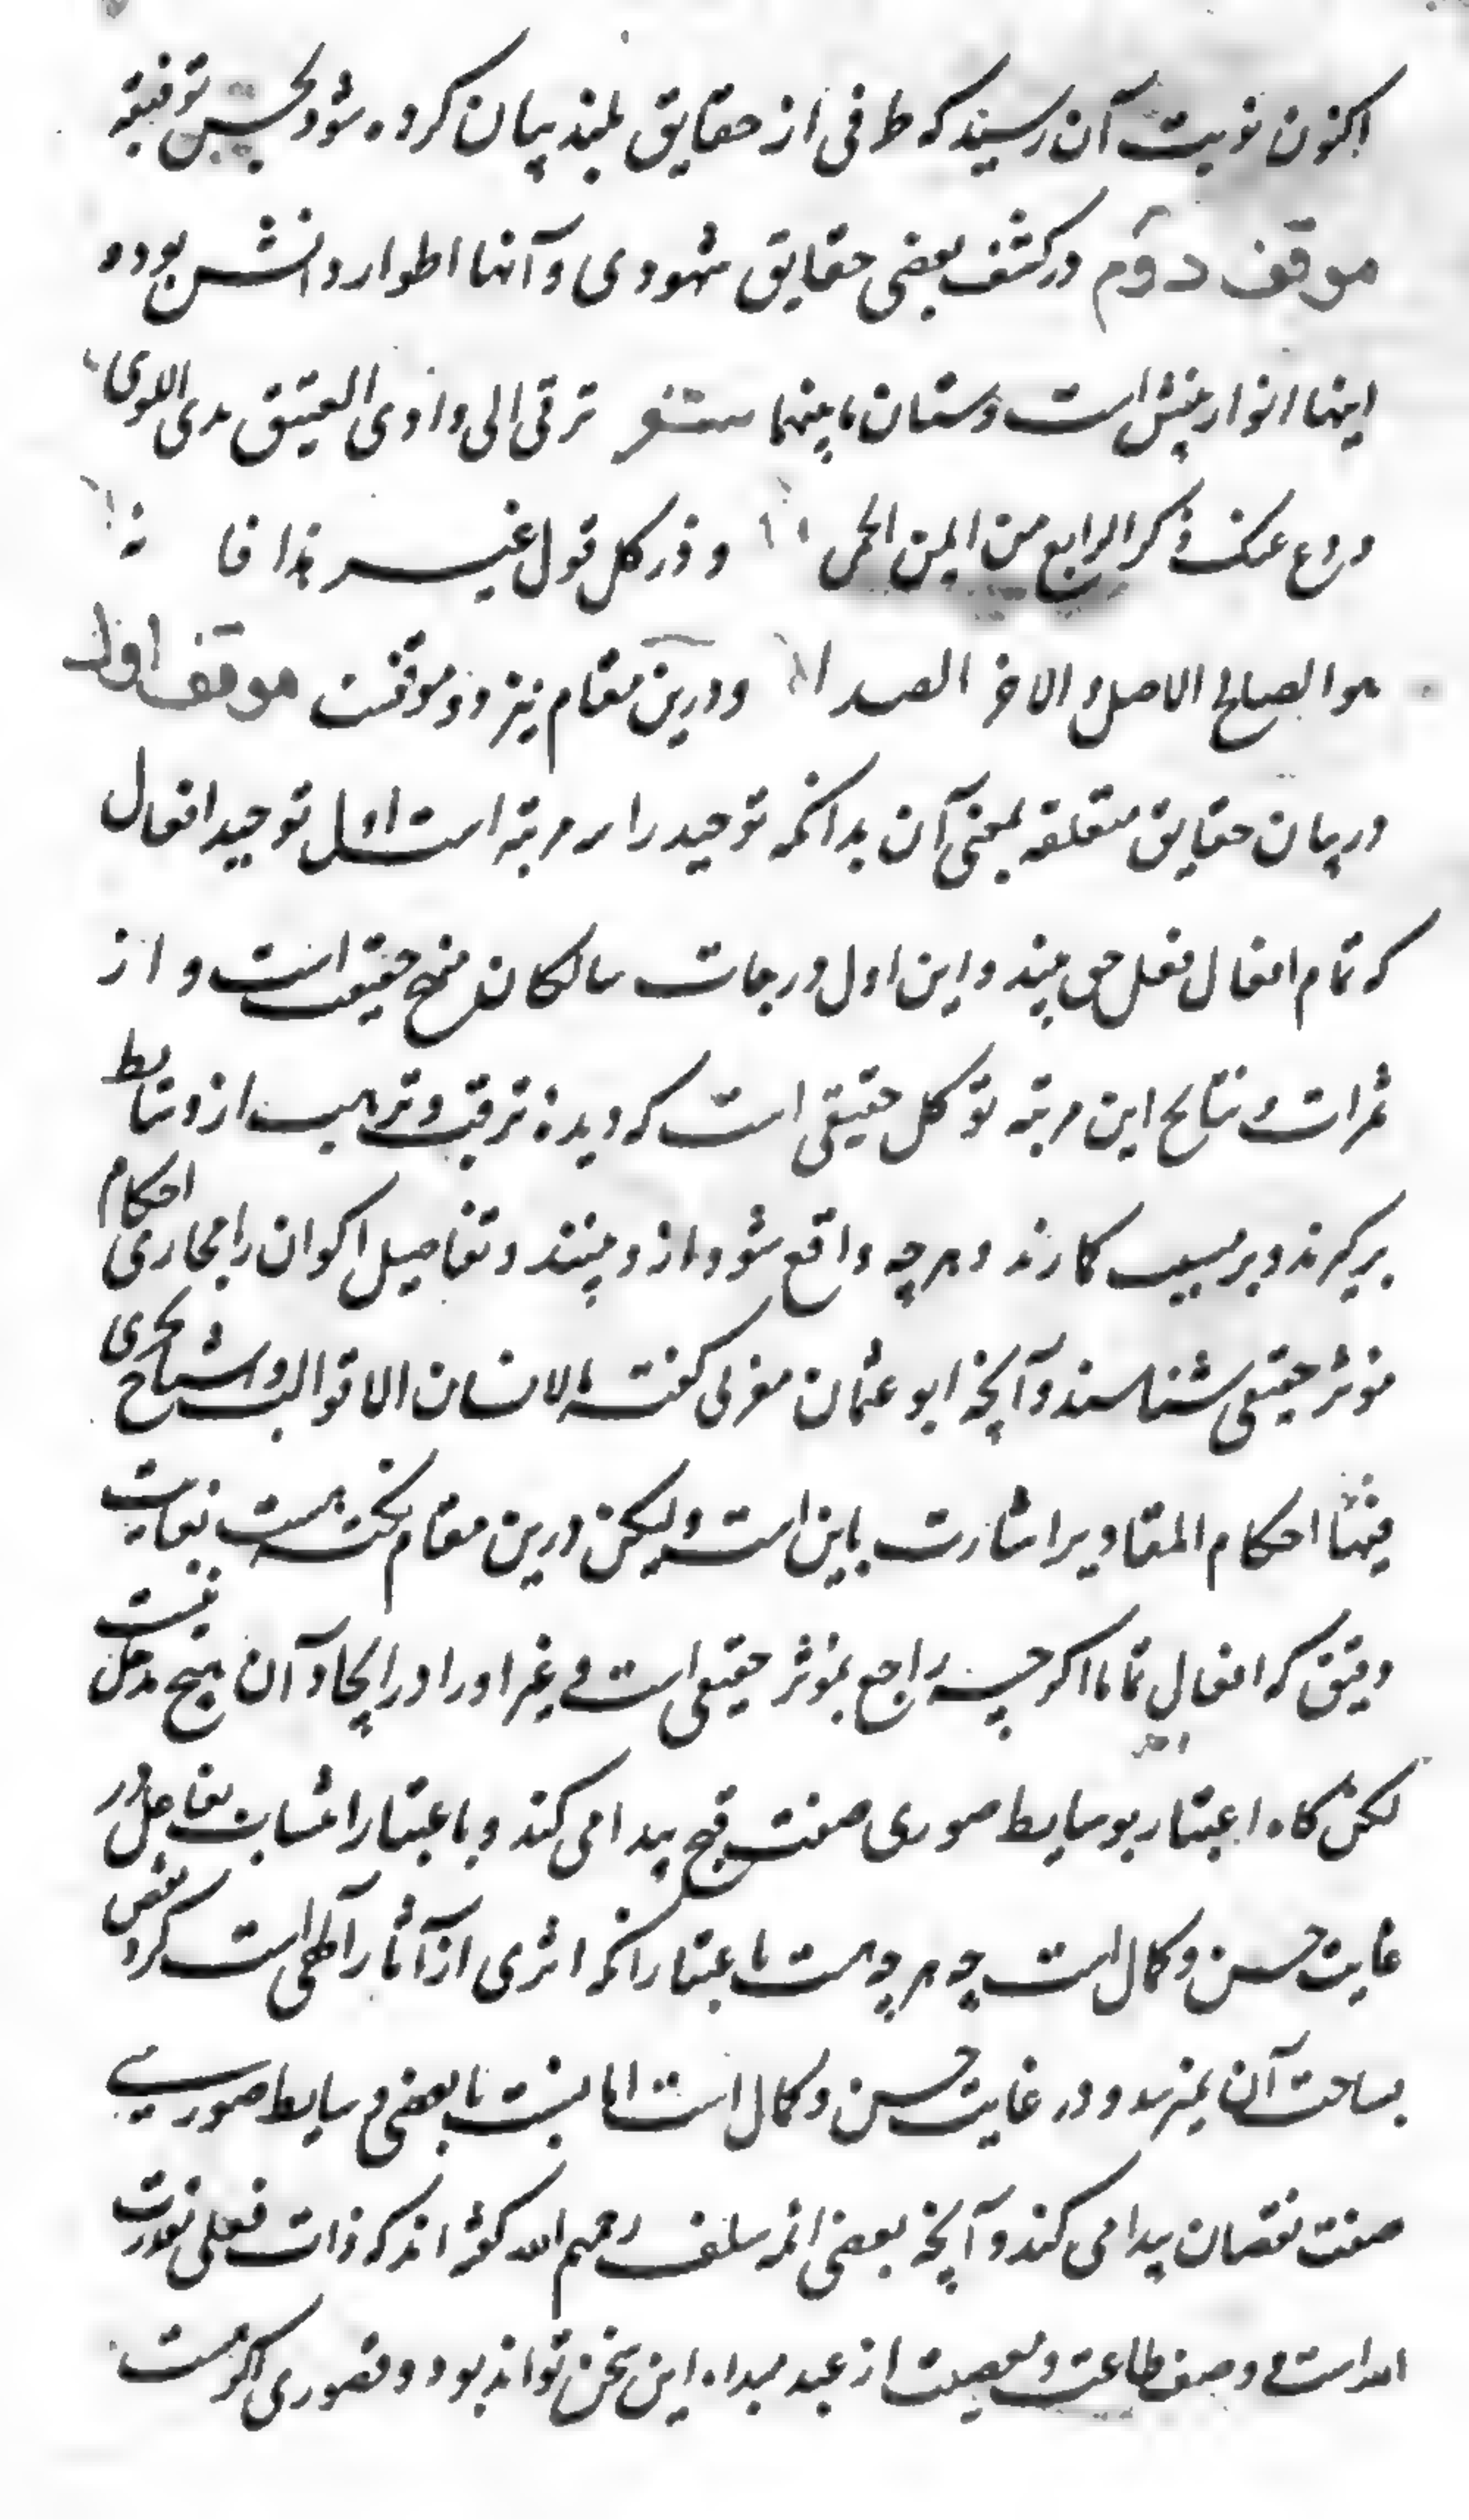 اکنون نوبت آن رسید که طرفی از حقایق بلند بیان کرده شود بحسن توفیقه
موقف دوم در کشف بعضی حقایق شهودی و آنها اطوار دانش بوده
اینها انوار بینش است و ستان ما بینهما شعر ترقی الی وادی العقیق لدی اللوی
ودع عنک ذکر الرابع من ایمن الحمی وذر کل قول غیر هذا فا نه
هو الصالح الاصل والاخر الصدا و درین مقام نیز دو موقفست موقف اول
در بیان حقایق متعلقه بمعنی آن بدانکه توحید را سه مرتبه است اول توحید افعال
که تمام افعال فعل حق بیند و این اول درجات سالکان منهج حقیقت است و از
ثمرات و نتایج این مرتبه توکل حقیقی است که دیده ترقب و ترهب از وسایط
برگیرند و بر مسبب گمارند و هرچه واقع شود ازو بینند و تفاصیل اکوان را مجاری احکام
موثر حقیقی شناسند و آنچه ابو عثمان مغربی گفته الانسان الا قوالب و اشباح تجری
فیها احکام المقادیر اشارت باین است و لیکن درین مقام نکته هست بغایت
دقیق که افعال تماما اگرچه راجع بموثر حقیقی است و غیر او را در ایجاد آن هیچ مدخل نیست
لکن گاه اعتبار بوسایط صوری صفت قبح پیدا می کند و باعتبار انتساب بفاعل در
غایت حسن و کمال است چه هرچه هست باعتبار آنکه اثری از آثار آلهی است گرد نقص
بساحت آن نمیرسد و در غایت حسن و کمال است اما بنسبت با بعضی وسایط صوری
صفت نقصان پیدا می کند و آنچه بعضی ائمه سلف رحمهم الله گفته اند که ذات فعل بقدرت
الله است و وصف طاعت و معصیت از عبد مبداء این سخن تواند بود و قصوری اگر هست